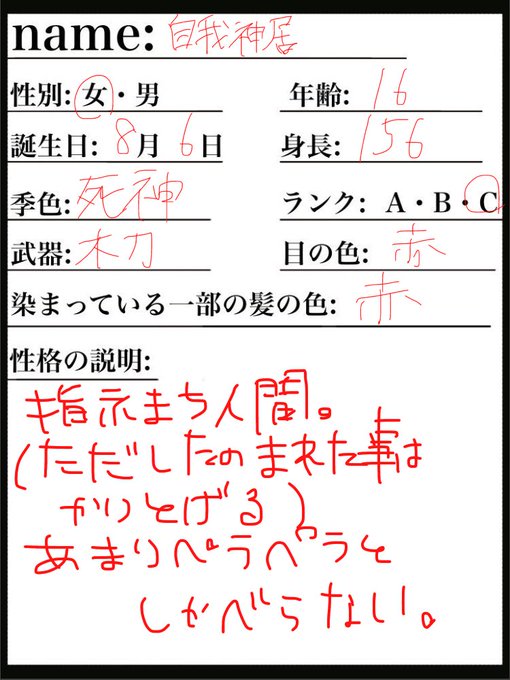 name: 自我神居
性別: 女・男 年齢: 16
誕生日: 8月6日 身長: 156
季色: 死神 ランク: A・B・C
武器: 木刀 目の色: 赤
染まっている一部の髪の色: 赤
性格の説明:
指示まち人間。
(ただしたのまれた事は
かりとげる)
あまりペラペラと
しゃべらない。